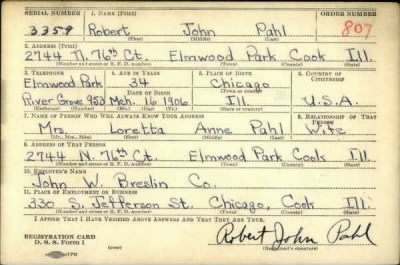 SERIAL NUMBER 1. NAME (Print) ORDER NUMBER
3359 Robert John Pahl 807
(First) (Middle) (Last)
2. ADDRESS (Print)
2744 N. 76th Ct. Elmwood Park Cook Ill.
(Number and street or R. F. D. number) (Town) (County) (State)
3. TELEPHONE 4. AGE IN YEARS 5. PLACE OF BIRTH 6. COUNTRY OF CITIZENSHIP
Elmwood Park 34 Chicago
DATE OF BIRTH (Town or county)
River Grove 953 Mch. 16 1906 Ill. U.S.A.
(Exchange) (Number) (Mo.) (Day) (Yr.) (State or country)
7. NAME OF PERSON WHO WILL ALWAYS KNOW YOUR ADDRESS 8. RELATIONSHIP OF THAT PERSON
Mrs. Loretta Anne Pahl Wife
(Mr., Mrs., Miss) (First) (Middle) (Last)
9. ADDRESS OF THAT PERSON
2744 N. 76th Ct. Elmwood Park Cook Ill.
(Number and street or R. F. D. number) (Town) (County) (State)
10. EMPLOYER'S NAME
John W. Breslin Co.
11. PLACE OF EMPLOYMENT OR BUSINESS
330 S. Jefferson St. Chicago, Cook Ill.
(Number and street or R. F. D. number) (Town) (County) (State)
I AFFIRM THAT I HAVE VERIFIED ABOVE ANSWERS AND THAT THEY ARE TRUE.
REGISTRATION CARD
D. S. S. Form 1 (over) Robert John Pahl
(Registrant's signature)